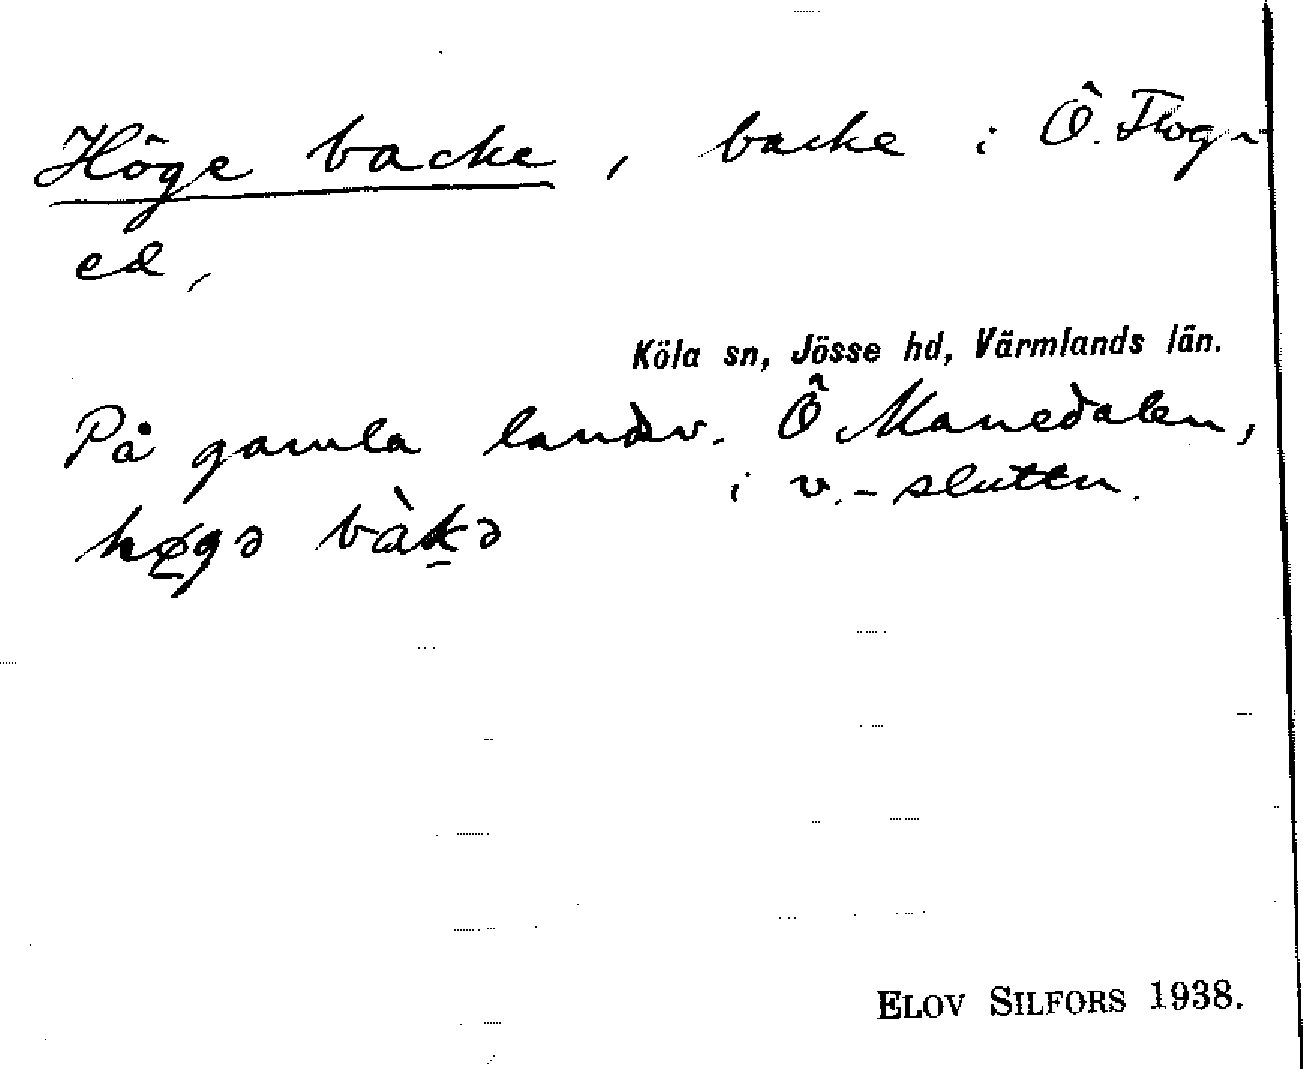 Höge backe, backe i Ö. Flogn-
ed,
Köla sn, Jösse hd, Värmlands län.
På gamla landsv. Ö Manedalen,
i v.-slutten.
høgə bàkə
ELOV SILFORS 1938.